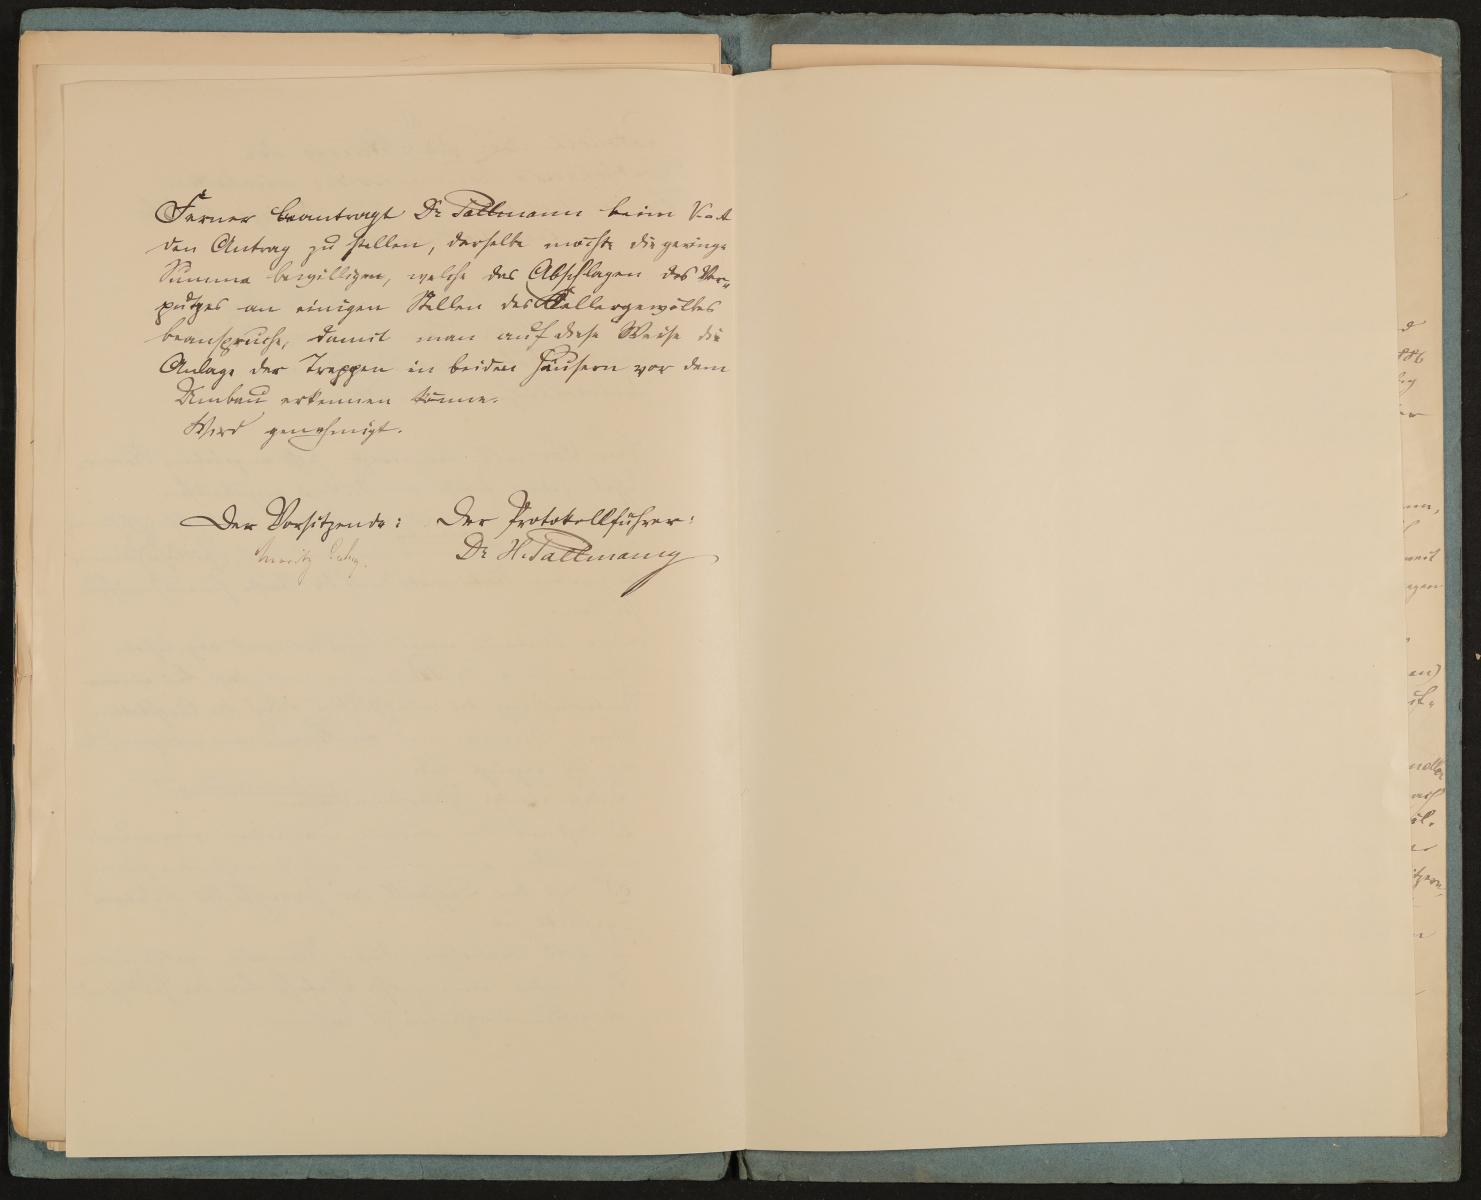 Ferner beantragt Dr. Pallmann beim V.-A
den Antrag zu stellen, derselbe möchte die geringe
Summe bewilligen, welche das Abschlagen des Ver-
putzes an einigen Stellen des Kellergewölbes
beanspruche, damit man auf diese Weise die
Anlage der Treppen in beiden Häusern vor dem
Umbau erkennen könne.
Wird genehmigt.
Der Vorsitzende: Der Protokollführer:
Moritz Dr. H. Pallmann